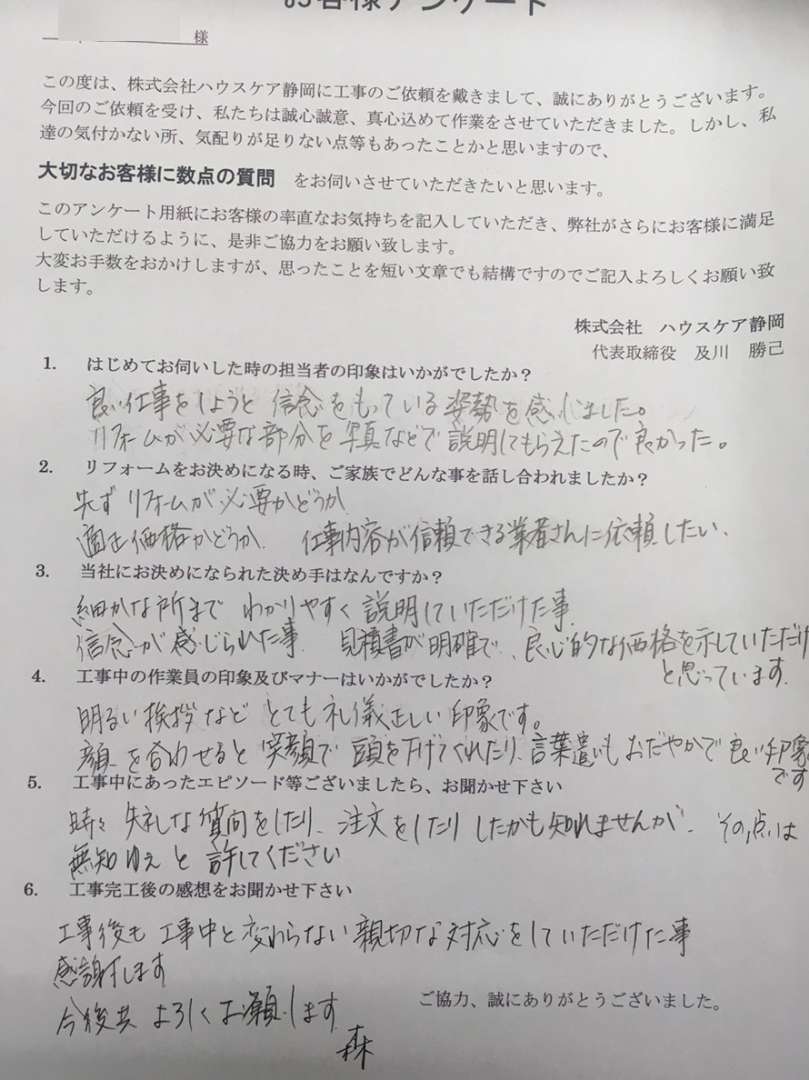 お客様アンケート
様
この度は、株式会社ハウスケア静岡に工事のご依頼を戴きまして、誠にありがとうございます。
今回のご依頼を受け、私たちは誠心誠意、真心込めて作業をさせていただきました。しかし、私
達の気付かない所、気配りが足りない点等もあったことかと思いますので、
大切なお客様に数点の質問 をお伺いさせていただきたいと思います。
このアンケート用紙にお客様の率直なお気持ちを記入していただき、弊社がさらにお客様に満足
していただけるように、是非ご協力をお願い致します。
大変お手数をおかけしますが、思ったことを短い文章でも結構ですのでご記入よろしくお願い致
します。
株式会社 ハウスケア静岡
代表取締役 及川 勝己
1. はじめてお伺いした時の担当者の印象はいかがでしたか？
良い仕事をしようと信念をもっている姿勢を感じました。
リフォームが必要な部分を写真などで説明してもらえたので良かった。
2. リフォームをお決めになる時、ご家族でどんな事を話し合われましたか？
先ずリフォームが必要かどうか
適正価格かどうか、 仕事内容が信頼できる業者さんに依頼したい、
3. 当社にお決めになられた決め手はなんですか？
細かな所まで わかりやすく説明していただけた事
信念が感じられた事 見積書が明確で、良心的な価格を示していただけ
と思っています。
4. 工事中の作業員の印象及びマナーはいかがでしたか？
明るい挨拶など とても礼儀正しい印象です。
顔を合わせると笑顔で頭を下げてくれたり、言葉遣いもおだやかで良い印象
です
5. 工事中にあったエピソード等ございましたら、お聞かせ下さい
時々 失礼な質問をしたり、注文をしたりしたかも知れませんが、その点は
無知ゆえと許してください
6. 工事完工後の感想をお聞かせ下さい
工事後も工事中と変わらない親切な対応をしていただけた事
感謝します
今後共よろしくお願いします
森
ご協力、誠にありがとうございました。